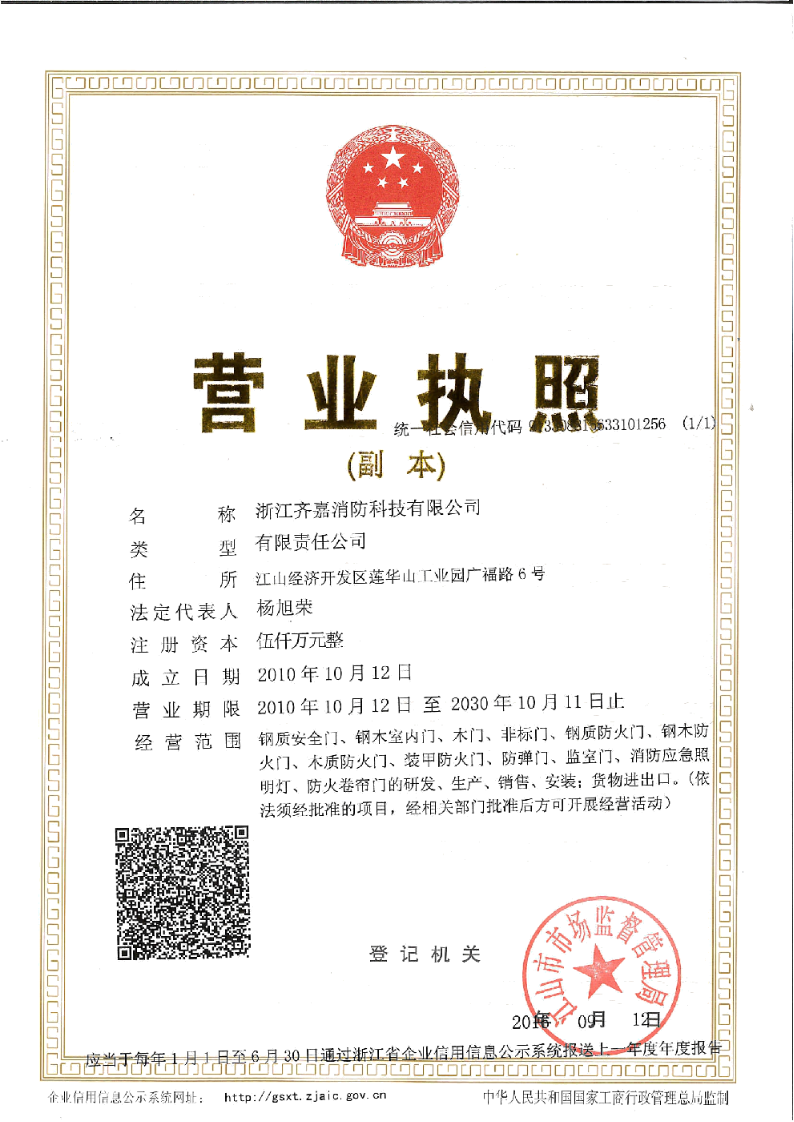 营业执照
统一社会信用代码 33101256 (1/1)
(副 本)
名 称 浙江齐嘉消防科技有限公司
类 型 有限责任公司
住 所 江山经济开发区莲华山工业园广福路6号
法定代表人 杨旭荣
注册资本 伍仟万元整
成立日期 2010年10月12日
营业期限 2010年10月12日 至 2030年10月11日止
经营范围 钢质安全门、钢木室内门、木门、非标门、钢质防火门、钢木防
火门、木质防火门、装甲防火门、防弹门、监室门、消防应急照
明灯、防火卷帘门的研发、生产、销售、安装；货物进出口。(依
法须经批准的项目，经相关部门批准后方可开展经营活动)
登记机关
江山市市场监督管理局
2016年 09月 12日
应当于每年1月1日至6月30日通过浙江省企业信用信息公示系统报送上一年度年度报告
企业信用信息公示系统网址： http://gsxt.zjaic.gov.cn
中华人民共和国国家工商行政管理总局监制